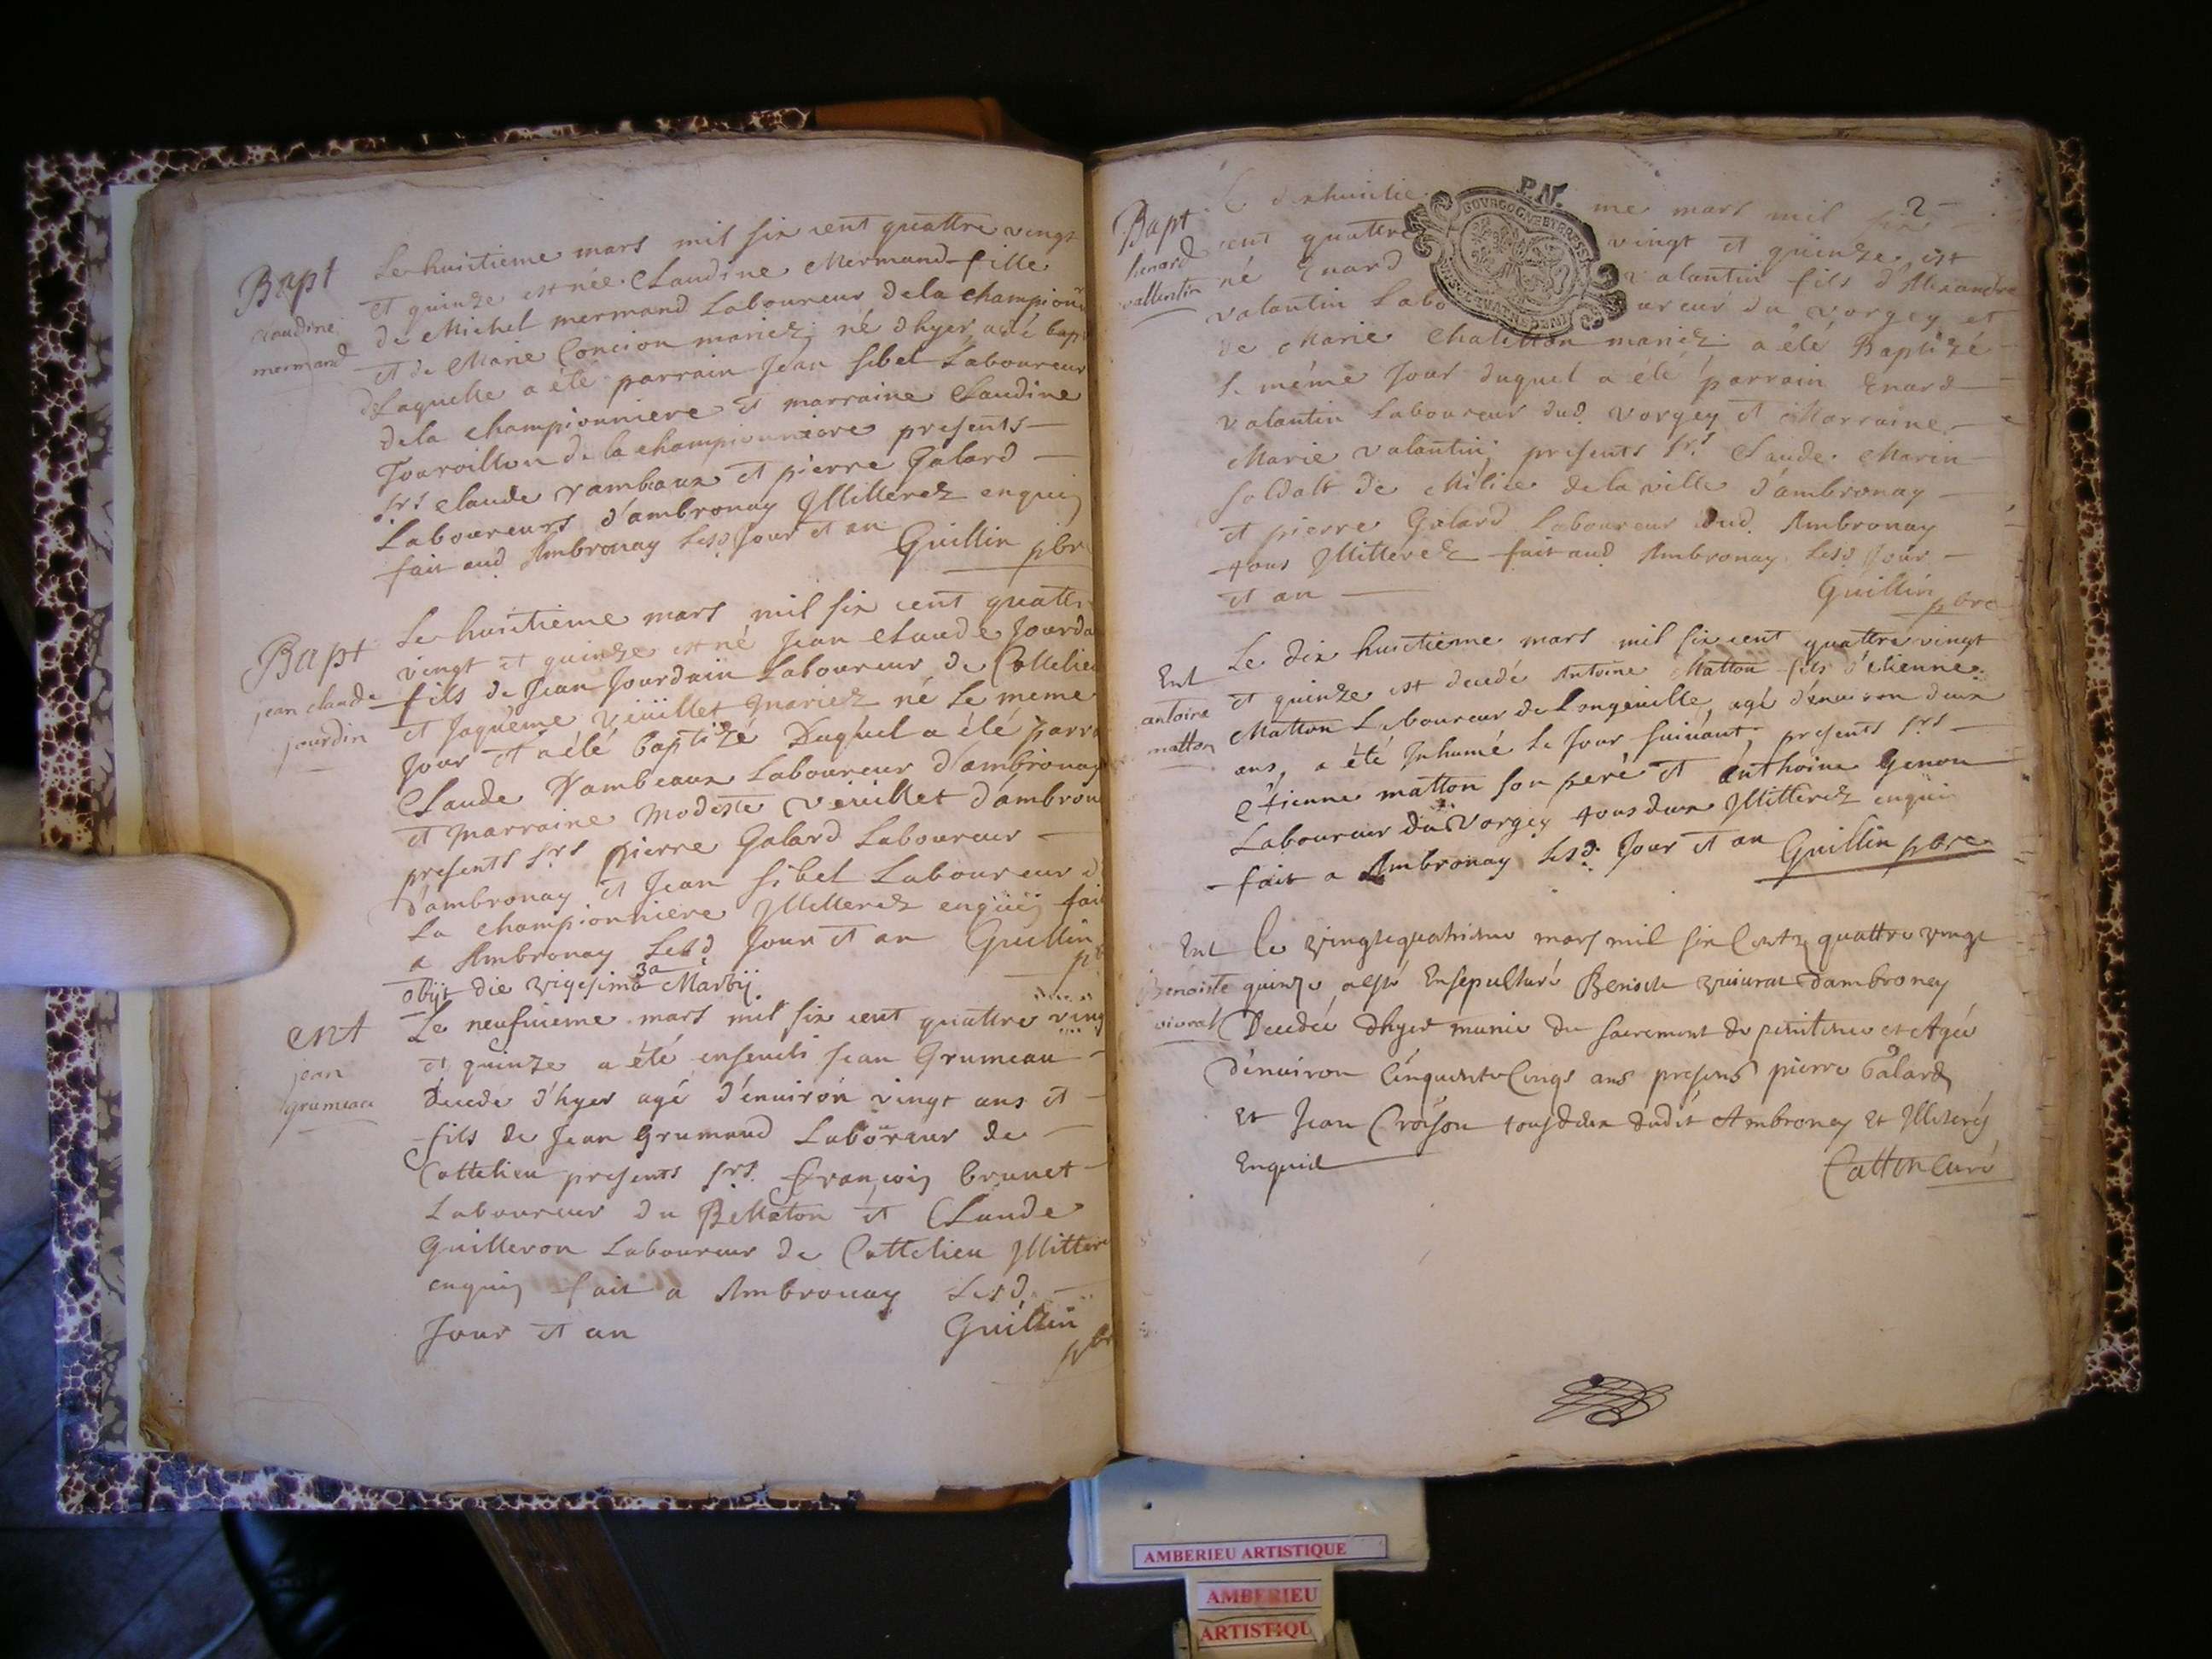 Bapt
claudine
mermand
Le huictieme mars mil six cent quattre vingt
et quinze est née Claudine Mermand fille
de Michel mermand Laboureur dela champion
et de Marie Concion mariez né dhyer a été bap
dLaquelle a été parrain Jean sibel Laboureur
dela championniere et marraine Claudine
Jouroillon de la championniere presents
srs Claude rambaux et pierre Galard
Laboureurs d'ambronay Jllitterez enquis
fait aud Ambronay Lesd Jour et an
Guillin pbr
Bapt
jean claude
jourdin
Le huictieme mars mil six cent quattr
vingt et quinze est né Jean Claude Jourda
fils de Jean Jourdain Laboureur de Cottelieu
et Jaquême veüillet mariez né le meme
Jour et a été baptizé Duquel a été parra
Claude Vambeaux Laboureur d'ambronay
et marraine modeste veuillet d'ambron
presents srs pierre Galard Laboureur
d'ambronay et Jean sibel Laboureur d
La championniere Jllitterez enquis fait
a Ambronay Lesd Jour et an Guillin
pb
obijt die vigesima 3a Martij
ent
jean
grumeau
Le neufvieme mars mil six cent quattre ving
et quinze a été enseveli Jean Grumeau
decede d'hyer agé d'énviron vingt ans et
fils de Jean Grumaud Laboureur de
Cottelieu presents srs. françois brunet
Laboureur du Bellaton et Claude
Guilleron Laboureur de Cottelieu Jllittere
enquis fait a Ambronay Lesd
Jour et an
Guillin
pbr
P.N.
2
BOVRGOGNE BTERSSE
Bapt
henard
vallentin
Le dixhuictieme mars mil six
cent quattre vingt et quinze est
né Enard valantin fils d'Alexandre
valantin Laboureur du vorgey et
de Marie Chalitton mariez a été Baptizé
le même Jour duquel a été parrain Enard
valantin Laboureur dud vorgey et Marraine
Marie valantin presents srs Claude Marin
soldatt de Milice dela ville d'ambronay
et pierre Galard Laboureur dud Ambronay
tous Jllitterez fait aud Ambronay Lesd Jour
et an
Guillin
pbre
Ent
antoine
matton
Le dix huictieme mars mil six cent quattre vingt
et quinze est decedé Antoine Matton fils d'etienne
Matton Laboureur de Longeville, agé d'environ deux
ans, a été Jnhumé le Jour suivant, presents srs
etienne matton son pere et anthoine Genou
Laboureur du Vorgey tous deux Jllitterez enquis
fait a Ambronay Lesd Jour et an Guillin pbre
Ent
Benoiste
vivrat
Le vingtquatrième mars mil six Centz quattre vingt
quinze, a esté Ensepulturé Benoite vivrat dambroney
Decedée dhyer munie du sacrement de penitence et Agée
d'environ Cinquante Cinqs ans presens pierre Galard
Et Jean Croison tousdeux dudit Ambroney Et Jlliterés
Enquis
Catton Curé
AMBERIEU ARTISTIQUE
AMBERIEU
ARTISTIQU